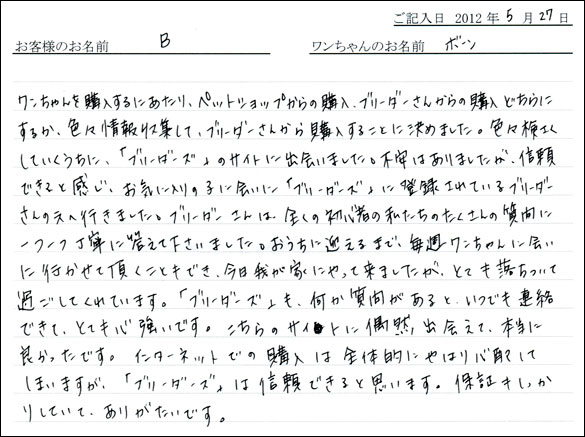 ご記入日 2012年5月27日
お客様のお名前 B ワンちゃんのお名前 ボーン
ワンちゃんを購入するにあたり、ペットショップからの購入、ブリーダーさんからの購入どちらに
するか、色々情報収集して、ブリーダーさんから購入することに決めました。色々検索
していくうちに、「ブリーダーズ」のサイトに出会いました。不安はありましたが、信頼
できると感じ、お気に入りの子に会いに「ブリーダーズ」に登録されているブリーダー
さんの元へ行きました。ブリーダーさんは、全くの初心者の私たちのたくさんの質問に
一つ一つ丁寧に答えて下さいました。おうちに迎えるまで、毎週ワンちゃんに会い
に行かせて頂くこともでき、今日我が家にやって来ましたが、とても落ちついて
過ごしてくれています。「ブリーダーズ」も、何か質問があると、いつでも連絡
できて、とても心強いです。こちらのサイトに偶然出会えて、本当に
良かったです。インターネットでの購入は全体的にやはり心配して
しまいますが、「ブリーダーズ」は信頼できると思います。保証もしっか
りしていて、ありがたいです。